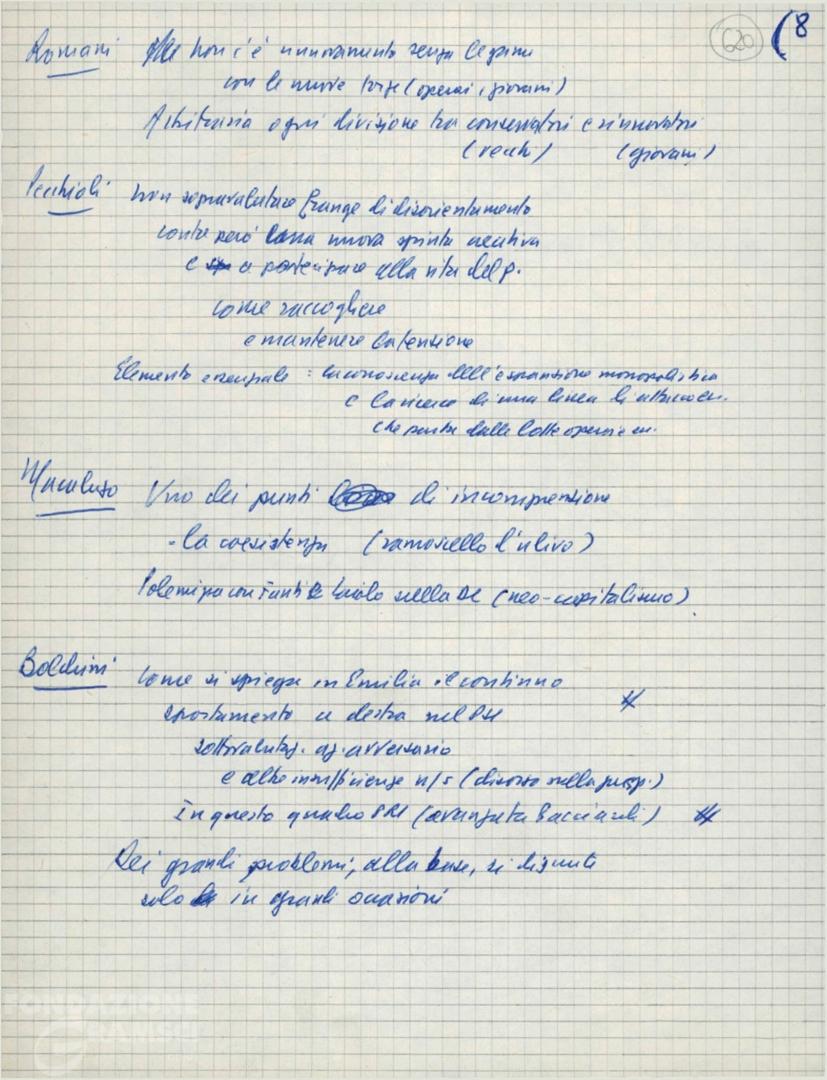 620
8
Romani Non c'è rinnovamento senza legami
con le nuove forze (operai, giovani)
Arbitraria ogni divisione tra conservatori e rinnovatori
(vecchi) (giovani)
Pecchioli Non sopravalutare frange di disorientamento
c'è però una nuova spinta creativa
e a partecipare alla vita del p.
come raccogliere
e mantenere la tensione
Elemento essenziale: la conoscenza dell'espansione monopolistica
e la ricerca di una linea di attacco
che parta dalle lotte operaie
Macaluso Uno dei punti di incomprensione
- la coesistenza (ramoscello d'ulivo)
Polemica con Fanti sulla DC (neo-capitalismo)
Boldrini Come si spiega in Emilia il continuo
spostamento a destra nel PSI
sottovalutaz. az. avversario
e altre insufficienze n/s (discorso sulla prosp.)
In questo quadro PRI (avanzata Bacciardi)
Dei grandi problemi, alla base, si discute
solo in grandi occasioni
FONDAZIONE
GRAMSCI